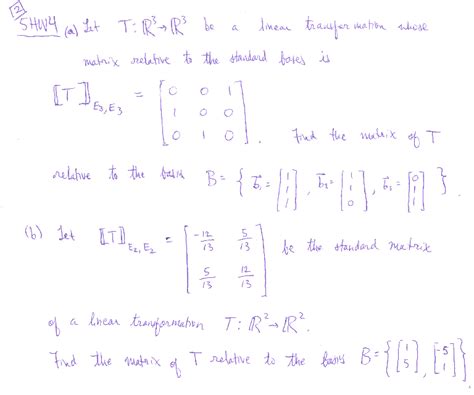 [2]
SHW4 (a) Let T: ℝ³→ℝ³ be a linear transformation whose
matrix relative to the standard bases is
⟦T⟧_{E₃,E₃} = [0 0 1; 1 0 0; 0 1 0]. Find the matrix of T
relative to the basis B = { b⃗₁ = [1; 1; 1], b⃗₂ = [1; 1; 0], b⃗₃ = [0; 1; 1] }.
(b) Let ⟦T⟧_{E₂,E₂} = [-12/13 5/13; 5/13 12/13] be the standard matrix
of a linear transformation T: ℝ²→ℝ².
Find the matrix of T relative to the basis B = { [1; 5], [-5; 1] }.